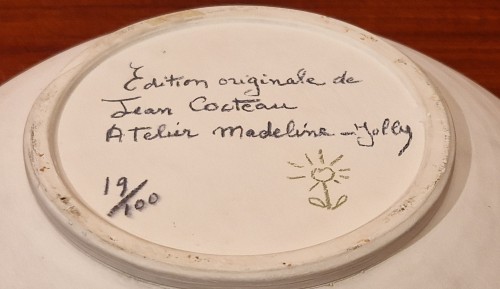 Édition originale de
Jean Cocteau
Atelier Madeline-Jolly
19/100